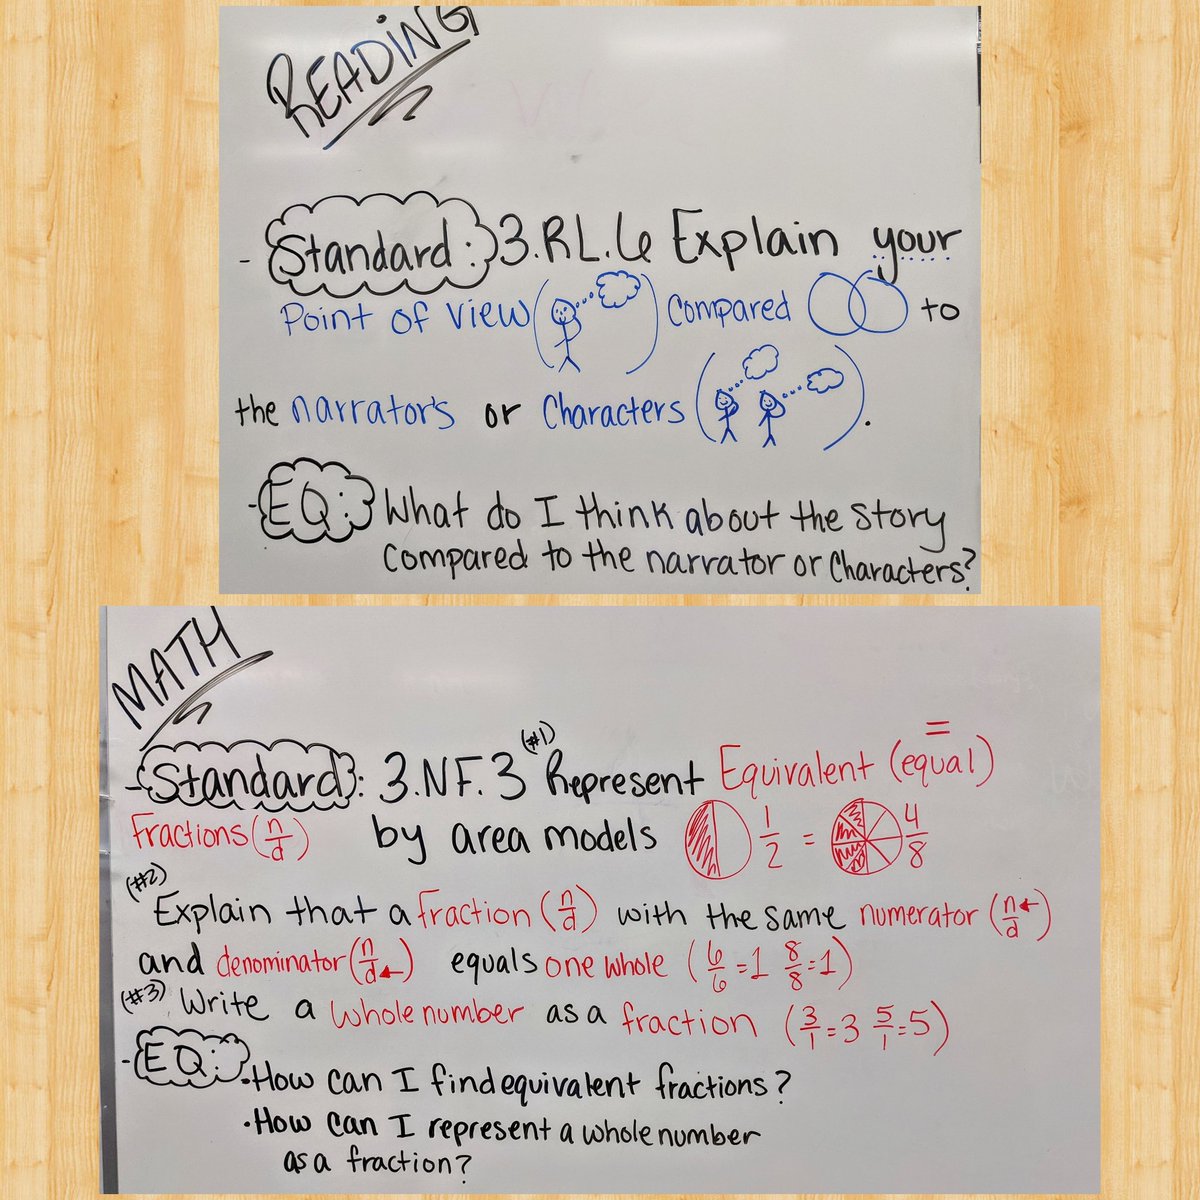 READING
- Standard: 3.RL.6 Explain your
Point of view ( ) compared to
the narrator's or characters ( ).
- EQ: What do I think about the story
compared to the narrator or characters?
MATH
=
- Standard: 3.NF.3 (#1) Represent Equivalent (equal)
Fractions (n/d) by area models 1/2 = 4/8
(#2)
Explain that a fraction (n/d) with the same numerator (n/d ←)
and denominator (n/d ←) equals one whole (6/6 = 1 8/8 = 1)
(#3) Write a whole number as a fraction (3/1 = 3 5/1 = 5)
- EQ: • How can I find equivalent fractions?
• How can I represent a whole number
as a fraction?